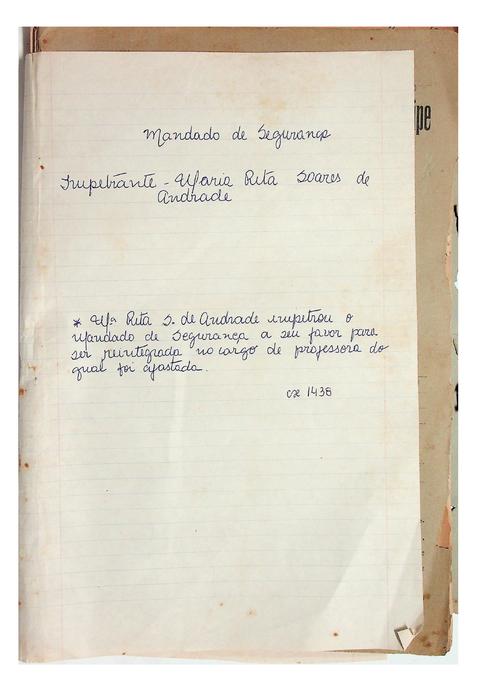 Mandado de Segurança
Impetrante - Maria Rita Soares de
Andrade
ipe
* Mª Rita S. de Andrade impetrou o
Mandado de Segurança a seu favor para
ser reintegrada no cargo de professora do
qual foi afastada.
cx 1438